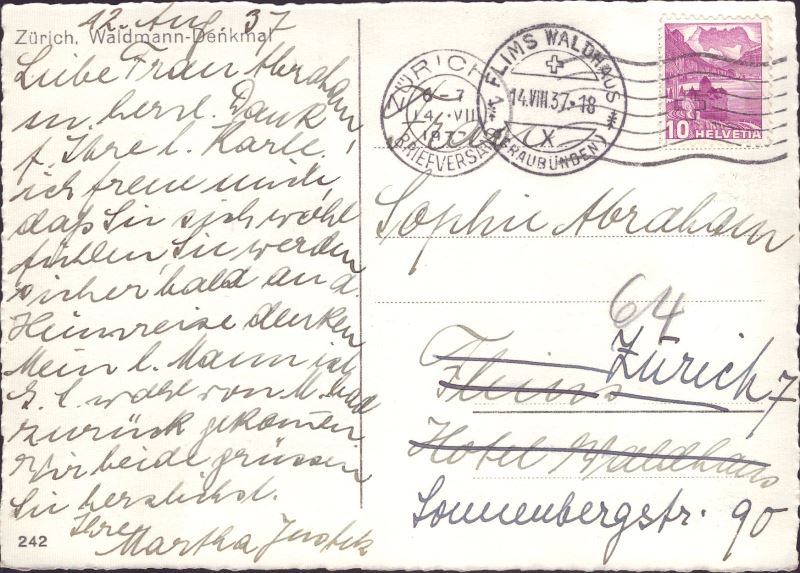 12. Aug 37
Zürich, Waldmann-Denkmal
Liebe Frau Abraham,
m. herzl. Dank
f. Ihre l. Karte,
ich freue mich,
daß Sie sich wohl
fühlen, Sie werden
sicher bald an d.
Heimreise denken
Mein l. Mann ist
g. L. wohl von M. bad
zurück gekommen
Wir beide grüssen
Sie herzlichst.
Ihre
Martha
242
ZÜRICH
6-7
14. VIII
1937
BRIEFVERSAND
FLIMS WALDHAUS
14.VIII.37-18
X
(GRAUBÜNDEN)
10 HELVETIA
Sophie Abraham
64
Flims
Zürich 7
Hotel Waldhaus
Sonnenbergstr. 90